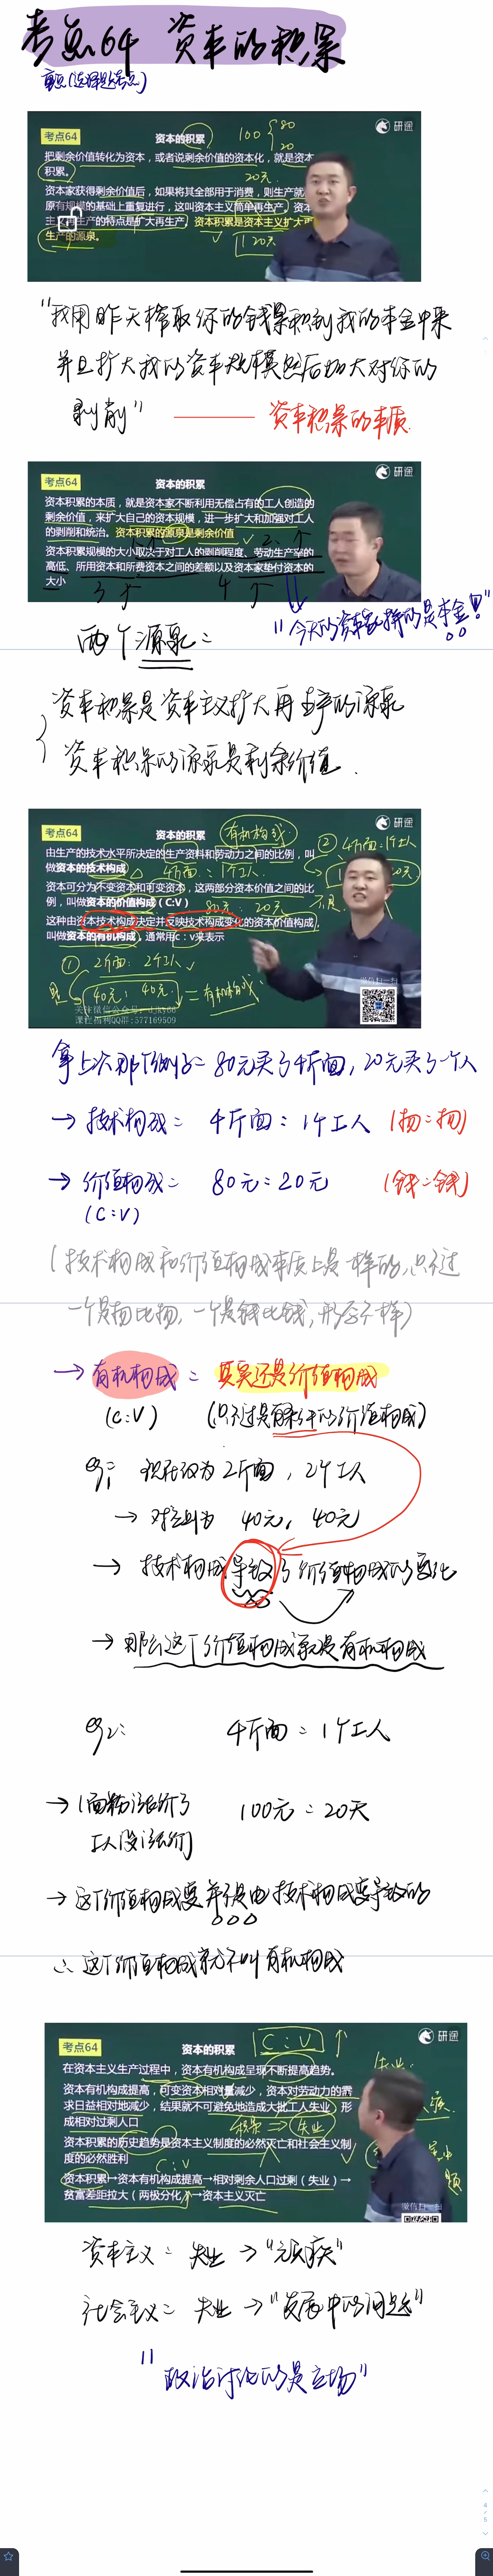 考点64 资本的积累
重点(选择题考点)
研途
考点64
资本的积累
100 { 80 20
把剩余价值转化为资本，或者说剩余价值的资本化，就是资本
积累。
20元
资本家获得剩余价值后，如果将其全部用于消费，则生产就
原有规模的基础上重复进行，这叫资本主义简单再生产。资本
生产的特点是扩大再生产。资本积累是资本主义扩大再
生产的源泉。
120元
"我用昨天榨取你的钱累积到我的本金中来
并且扩大我的资本规模然后加大对你的
剥削" —— 资本积累的本质.
研途
考点64
资本的积累
资本积累的本质，就是资本家不断利用无偿占有的工人创造的
剩余价值，来扩大自己的资本规模，进一步扩大和加强对工人
的剥削和统治。资本积累的源泉是剩余价值
资本积累规模的大小取决于对工人的剥削程度、劳动生产率的
高低、所用资本和所费资本之间的差额以及资本家垫付资本的
大小
3个 4个
"今天的资本家拼的是本金!"
两个源泉:
资本积累是资本主义扩大再生产的源泉
资本积累的源泉是剩余价值.
研途
考点64
资本的积累
有机构成
由生产的技术水平所决定的生产资料和劳动力之间的比例，叫
做资本的技术构成
4斤面:1个工人
② 4斤面:1个工人
资本可分为不变资本和可变资本，这两部分资本价值之间的比
例，叫做资本的价值构成（C:V）
80元:20元
这种由资本技术构成决定并反映技术构成变化的资本价值构成，
叫做资本的有机构成，通常用c：v来表示
① 2斤面:2个工人
40元:40元 = 有机构成
微信扫一扫
课程福利QQ群:577169509
拿上次那个例子: 80元买了4斤面, 20元买了一个人
→ 技术构成: 4斤面:1个工人 (物:物)
→ 价值构成: 80元:20元 (钱:钱)
(C:V)
(技术构成和价值构成本质上是一样的,只不过
一个是物比物,一个是钱比钱,形态不一样)
→ 有机构成: 其实还是价值构成
(C:V) (只不过是有条件的价值构成)
eg1: 现在改为2斤面, 2个工人
→ 对应则为 40元, 40元
→ 技术构成导致了价值构成的变化
→ 那么这个价值构成就是有机构成
eg2: 4斤面:1个工人
→ (面粉涨价了 100元:20元
工人没涨价)
→ 这个价值构成变并不是由技术构成变导致的
∴ 这个价值构成就不叫有机构成
研途
考点64
资本的积累
C:V ↑
在资本主义生产过程中，资本有机构成呈现不断提高趋势。
失业:
资本有机构成提高，可变资本相对量减少，资本对劳动力的需
求日益相对地减少，结果就不可避免地造成大批工人失业，形
成相对过剩人口
积累 ⇒ 失业
资本积累的历史趋势是资本主义制度的必然灭亡和社会主义制
度的必然胜利
C:V
资本积累→资本有机构成提高→相对剩余人口过剩（失业）→
贫富差距拉大（两极分化）→资本主义灭亡
微信扫一扫
资本主义: 失业 → "顽疾"
社会主义: 失业 → "发展中的问题"
"政治讨论的是立场"